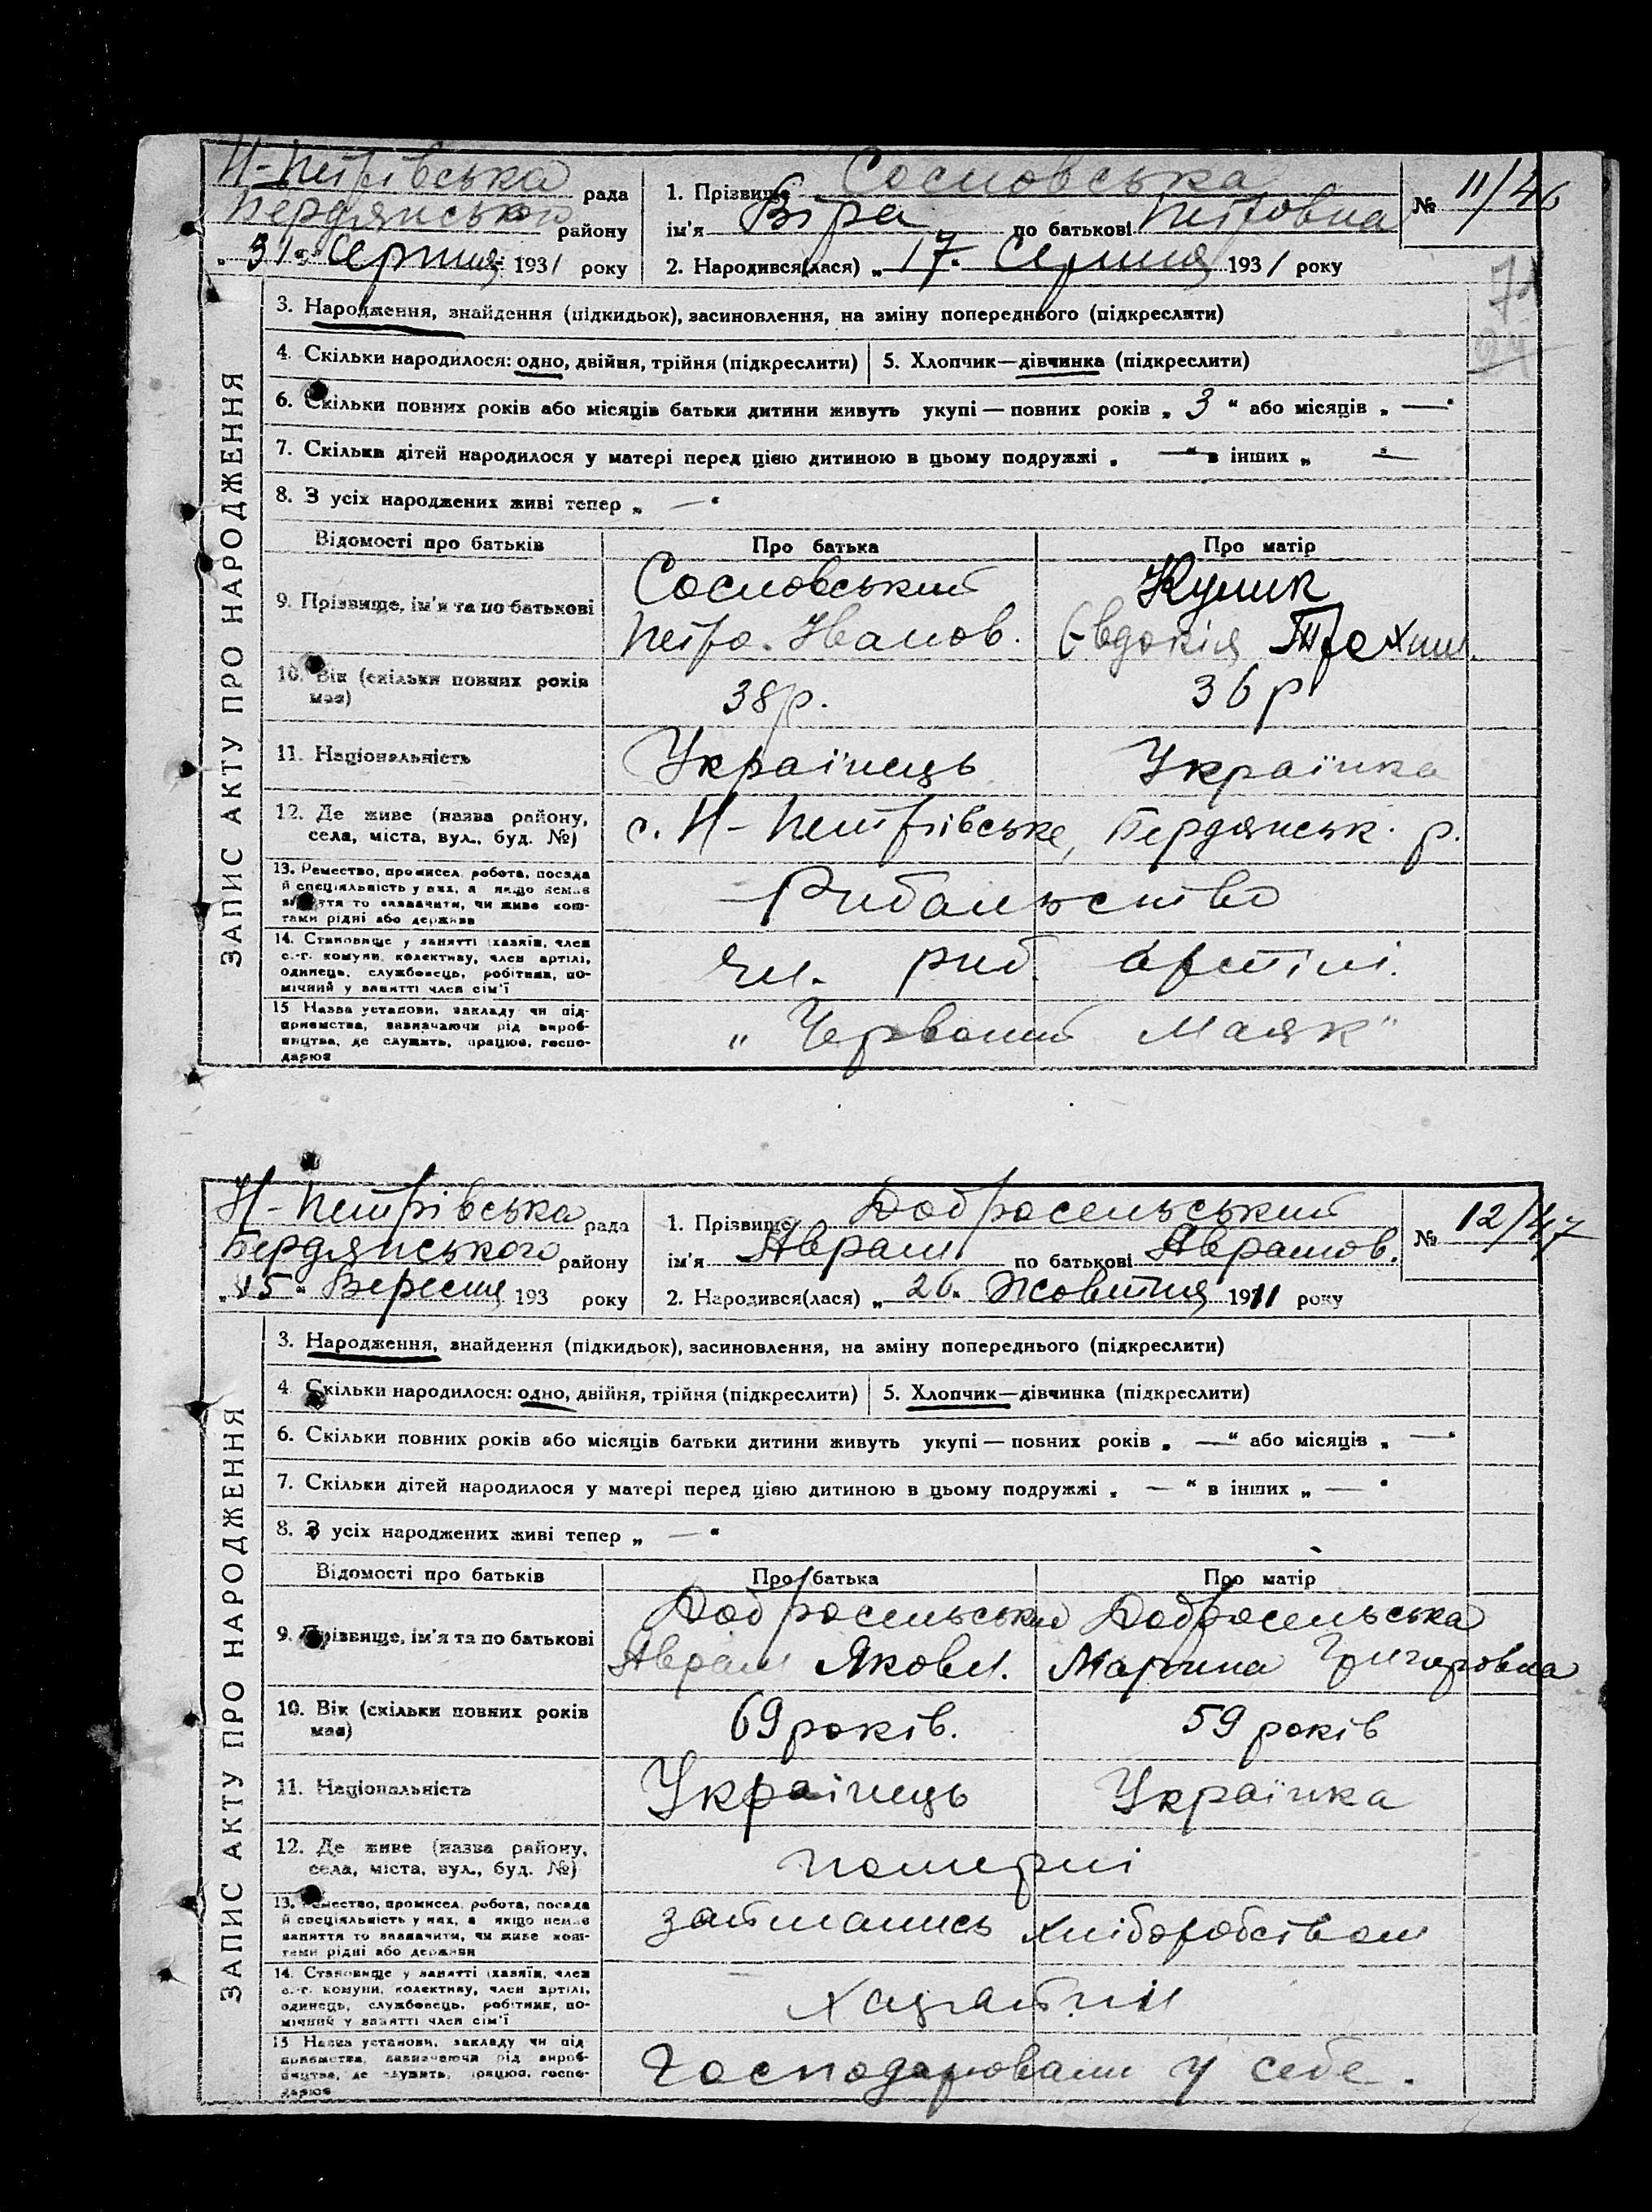 Н-Петрівська рада
Бердянського району
„31" Серпня 1931 року
1. Прізвище Сосновська
ім'я Віра по батькові Петровна
2. Народився(лася) „17" Серпня 1931 року
№ 11/46
ЗАПИС АКТУ ПРО НАРОДЖЕННЯ
3. Народження, знайдення (підкидьок), засиновлення, на зміну попереднього (підкреслити)
4. Скільки народилося: одно, двійня, трійня (підкреслити) 5. Хлопчик—дівчинка (підкреслити)
6. Скільки повних років або місяців батьки дитини живуть укупі — повних років „ 3 " або місяців „ — "
7. Скільки дітей народилося у матері перед цією дитиною в цьому подружжі „ — " в інших „ — "
8. З усіх народжених живі тепер „ — "
Відомості про батьків Про батька Про матір
9. Прізвище, ім'я та по батькові
Сосновський Кулик
Петро Іванов. Євдокія
10. Вік (скільки повних років
має)
38 р. 36 р
11. Національність Українець Українка
12. Де живе (назва району,
села, міста, вул., буд. №)
с. Н-Петрівське, Бердянськ. р.
13. Ремество, промисел, робота, посада
й спеціяльність у них, а якщо немає
заняття то зазначити, чи живе кош-
тами рідні або держави
Рибальство
14. Становище у занятті (хазяїн, член
с.-г. комуни, колективу, член артілі,
одинець, службовець, робітник, по-
мічний у занятті член сім'ї
Чл. риб. артілі.
15 Назва установи, закладу чи під-
приємства, визначаючи рід вироб-
ництва, де служить, працює, госпо-
дарює
„Червоний Маяк"
Н-Петрівська рада
Бердянського району
„15" Вересня 193 року
1. Прізвище Добросельський
ім'я Аврам по батькові Аврамов.
2. Народився(лася) „26" Жовтня 1911 року
№ 12/47
ЗАПИС АКТУ ПРО НАРОДЖЕННЯ
3. Народження, знайдення (підкидьок), засиновлення, на зміну попереднього (підкреслити)
4. Скільки народилося: одно, двійня, трійня (підкреслити) 5. Хлопчик—дівчинка (підкреслити)
6. Скільки повних років або місяців батьки дитини живуть укупі — повних років „ — " або місяців „ — "
7. Скільки дітей народилося у матері перед цією дитиною в цьому подружжі „ — " в інших „ — "
8. З усіх народжених живі тепер „ — "
Відомості про батьків Про батька Про матір
9. Прізвище, ім'я та по батькові
Добросельський Добросельська
Аврам Яковл. Марина Григоровна
10. Вік (скільки повних років
має)
69 років. 59 років
11. Національність Українець Українка
12. Де живе (назва району,
села, міста, вул., буд. №)
померлі
13. Ремество, промисел, робота, посада
й спеціяльність у них, а якщо немає
заняття то зазначити, чи живе кош-
тами рідні або держави
займались хліборобством
14. Становище у занятті (хазяїн, член
с.-г. комуни, колективу, член артілі,
одинець, службовець, робітник, по-
мічний у занятті член сім'ї
15 Назва установи, закладу чи під-
приємства, визначаючи рід вироб-
ництва, де служить, працює, госпо-
дарює
Господарювали у себе.